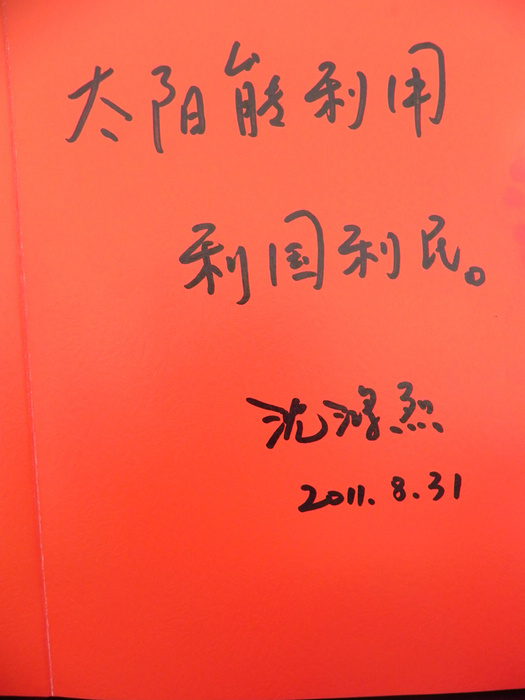 太阳能利用
利国利民。
沈鸿烈
2011.8.31